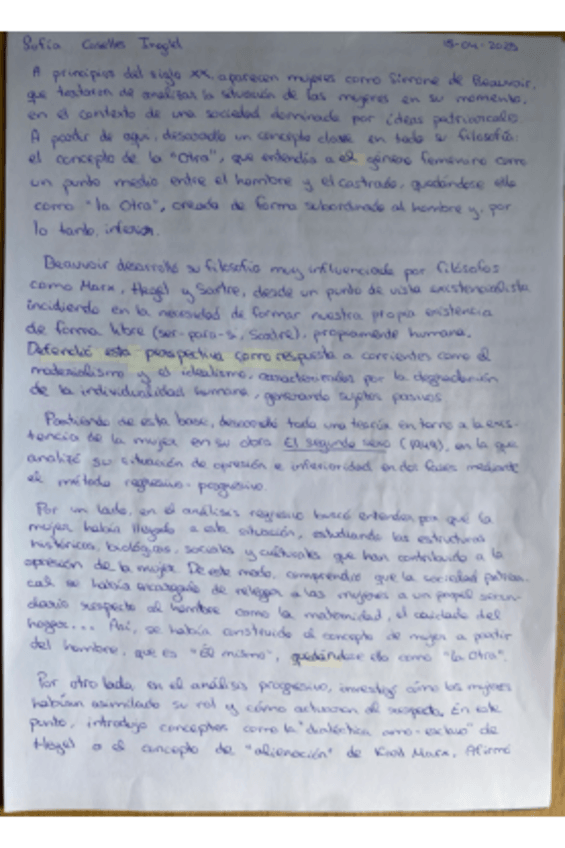 Sofía Caselles 15-04-2025
A principios del siglo XX aparecen mujeres como Simone de Beauvoir,
que trataron de analizar la situación de las mujeres en su momento,
en el contexto de una sociedad dominada por ideas patriarcales.
A partir de aquí, desarrolló un concepto clave en toda su filosofía:
el concepto de la "Otra", que entendía a el género femenino como
un punto medio entre el hombre y el castrado, quedándose ella
como "la Otra", creada de forma subordinada al hombre y, por
lo tanto, inferior.
Beauvoir desarrolló su filosofía muy influenciada por filósofos
como Marx, Hegel y Sartre, desde un punto de vista existencialista
incidiendo en la necesidad de formar nuestra propia existencia
de forma libre (ser-para-sí, Sartre), propiamente humana.
Defendió esta perspectiva como respuesta a corrientes como el
materialismo y el idealismo, caracterizados por la degradación
de la individualidad humana, generando sujetos pasivos.
Partiendo de esta base, desarrolló toda una teoría en torno a la exis-
tencia de la mujer en su obra El segundo sexo (1949), en la que
analizó su situación de opresión e inferioridad en dos fases mediante
el método regresivo-progresivo.
Por un lado, en el análisis regresivo buscó entender por qué la
mujer había llegado a esta situación, estudiando las estructuras
históricas, biológicas, sociales y culturales que han contribuido a la
opresión de la mujer. De este modo, comprendió que la sociedad patriar-
cal se había encargado de relegar a las mujeres a un papel secun-
dario respecto al hombre como la maternidad, el cuidado del
hogar... Así, se había construido el concepto de mujer a partir
del hombre, que es "Él mismo", quedándose ella como "la Otra".
Por otro lado, en el análisis progresivo, investigó cómo las mujeres
habían asimilado su rol y cómo actuaron al respecto. En este
punto, introdujo conceptos como la "dialéctica amo-esclavo" de
Hegel o el concepto de "alienación" de Karl Marx. Afirmó